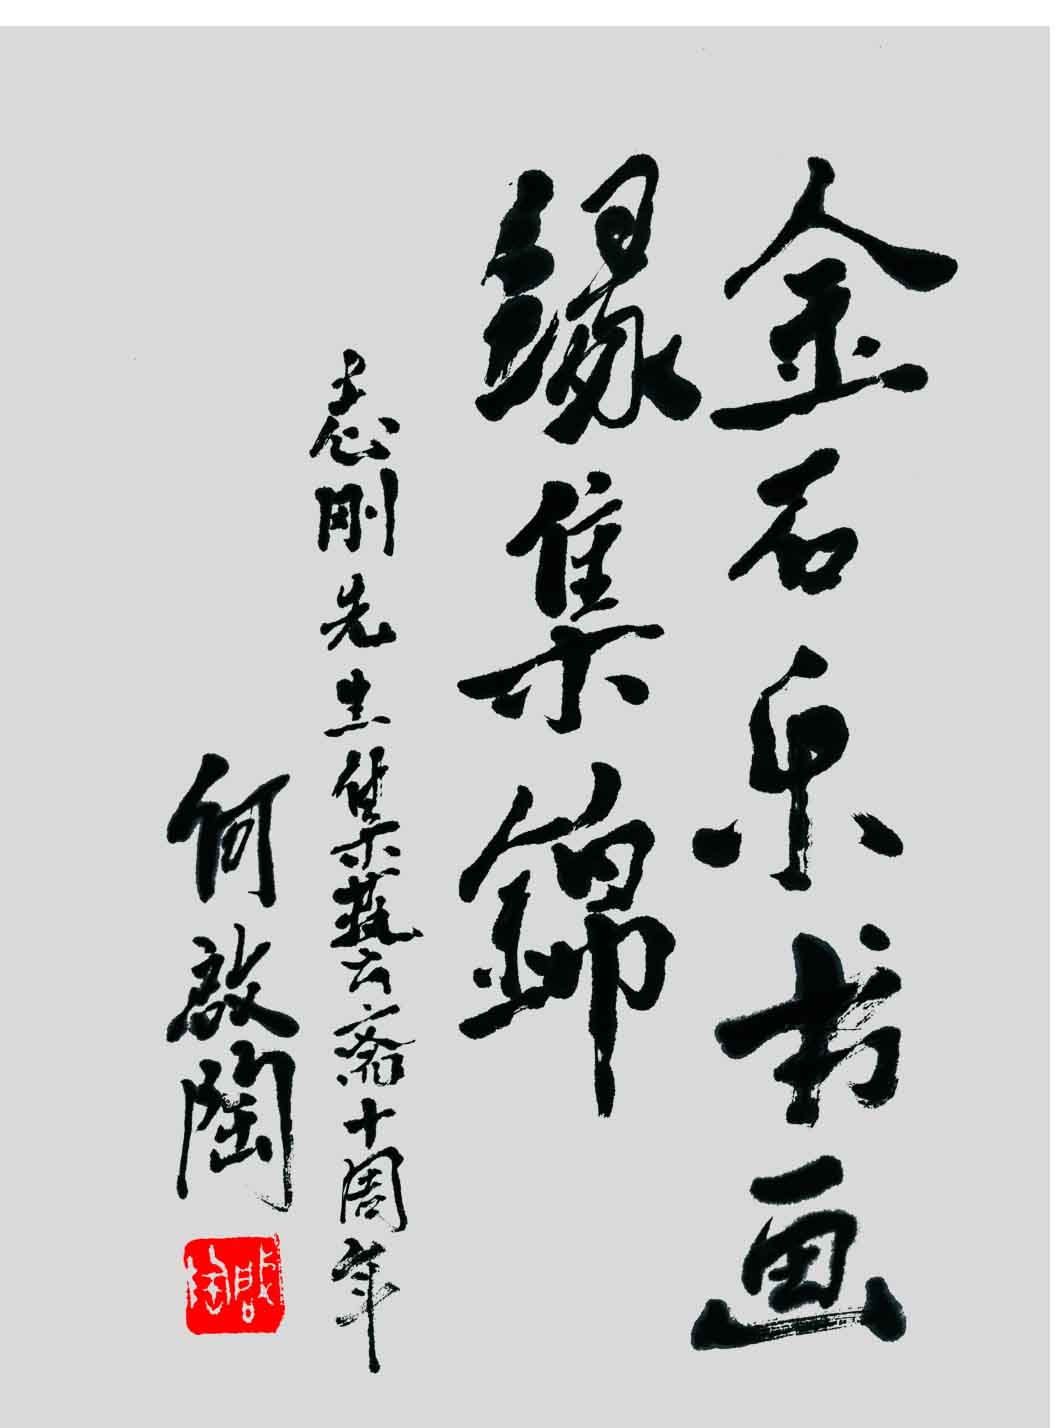 金石乐书画
缘集锦
志刚先生集艺云斋十周年
何启陶
启陶